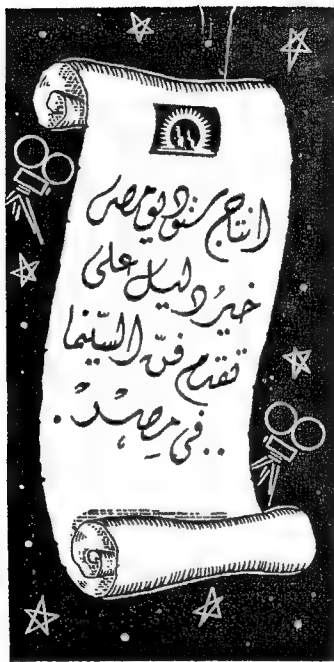 انتاج ستوديو مصر
خيرُ دليل على
تقدم فنّ السّينما
.. في مِصْرْ .